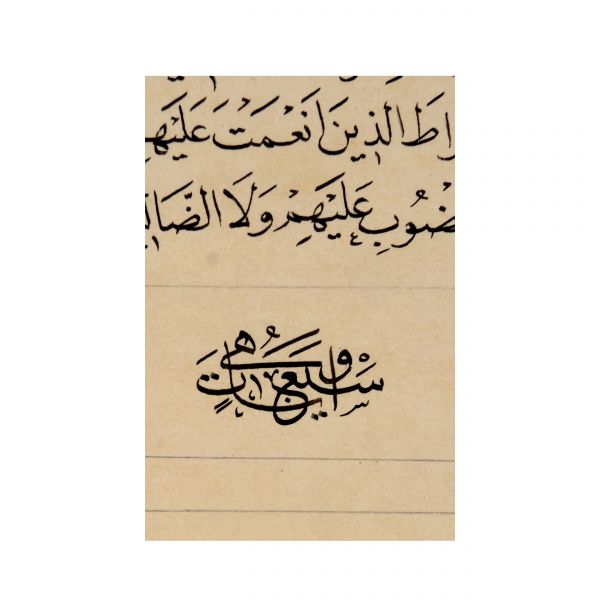 راطَ الذينَ اَنعَمتَ عَلَيهِ
ضُوبِ عَلَيهِمْ وَلَا الضَّالـ
وهي سبع اٰيات